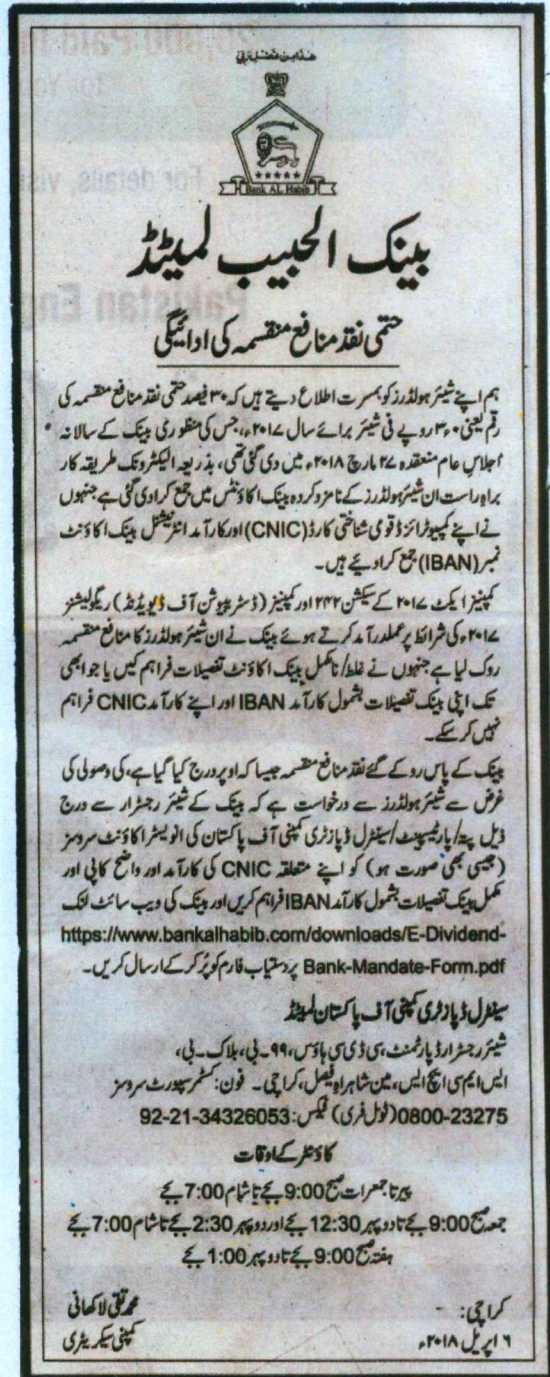 ھٰذا من فضل ربی
Bank AL Habib
بینک الحبیب لمیٹڈ
حتمی نقد منافع منقسمہ کی ادائیگی
ہم اپنے شیئر ہولڈرز کو بمسرت اطلاع دیتے ہیں کہ ۳۰ فیصد حتمی نقد منافع منقسمہ کی
رقم یعنی ۳ء۰ روپے فی شیئر برائے سال ۲۰۱۷ء، جس کی منظوری بینک کے سالانہ
اجلاس عام منعقدہ ۲۷ مارچ ۲۰۱۸ء میں دی گئی تھی، بذریعہ الیکٹرونک طریقہ کار
براہ راست ان شیئر ہولڈرز کے نامزد کردہ بینک اکاؤنٹس میں جمع کرادی گئی ہے جنہوں
نے اپنے کمپیوٹرائزڈ قومی شناختی کارڈ (CNIC) اور کارآمد انٹرنیشنل بینک اکاؤنٹ
نمبر (IBAN) جمع کرادیئے ہیں۔
کمپنیز ایکٹ ۲۰۱۷ کے سیکشن ۲۴۲ اور کمپنیز (ڈسٹریبیوشن آف ڈیویڈنڈ) ریگولیشنز
۲۰۱۷ء کی شرائط پر عملدرآمد کرتے ہوئے بینک نے ان شیئر ہولڈرز کا منافع منقسمہ
روک لیا ہے جنہوں نے غلط/نامکمل بینک اکاؤنٹ تفصیلات فراہم کیں یا جو ابھی
تک اپنی بینک تفصیلات بشمول کارآمد IBAN اور اپنے کارآمد CNIC فراہم
نہیں کرسکے۔
بینک کے پاس روکے گئے نقد منافع منقسمہ جیسا کہ اوپر درج کیا گیا ہے، کی وصولی کی
غرض سے شیئر ہولڈرز سے درخواست ہے کہ بینک کے شیئر رجسٹرار سے درج
ذیل پتہ/پارٹیسپنٹ/سینٹرل ڈپازٹری کمپنی آف پاکستان کی انویسٹر اکاؤنٹ سروسز
(جیسی بھی صورت ہو) کو اپنے متعلقہ CNIC کی کارآمد اور واضح کاپی اور
مکمل بینک تفصیلات بشمول کارآمد IBAN فراہم کریں اور بینک کی ویب سائٹ لنک
https://www.bankalhabib.com/downloads/E-Dividend-
Bank-Mandate-Form.pdf پر دستیاب فارم کو پُر کرکے ارسال کریں۔
سینٹرل ڈپازٹری کمپنی آف پاکستان لمیٹڈ
شیئر رجسٹرار ڈپارٹمنٹ، سی ڈی سی ہاؤس، ۹۹۔بی، بلاک۔بی،
ایس ایم سی ایچ ایس، مین شاہراہ فیصل، کراچی۔ فون: کسٹمر سپورٹ سروسز
0800-23275 (ٹول فری) فیکس: 92-21-34326053
کاؤنٹر کے اوقات
پیر تا جمعرات صبح 9:00 بجے تا شام 7:00 بجے
جمعہ صبح 9:00 بجے تا دوپہر 12:30 بجے اور دوپہر 2:30 بجے تا شام 7:00 بجے
ہفتہ صبح 9:00 بجے تا دوپہر 1:00 بجے
کراچی: محمد تقی لاکھانی
۶ اپریل ۲۰۱۸ء کمپنی سیکریٹری